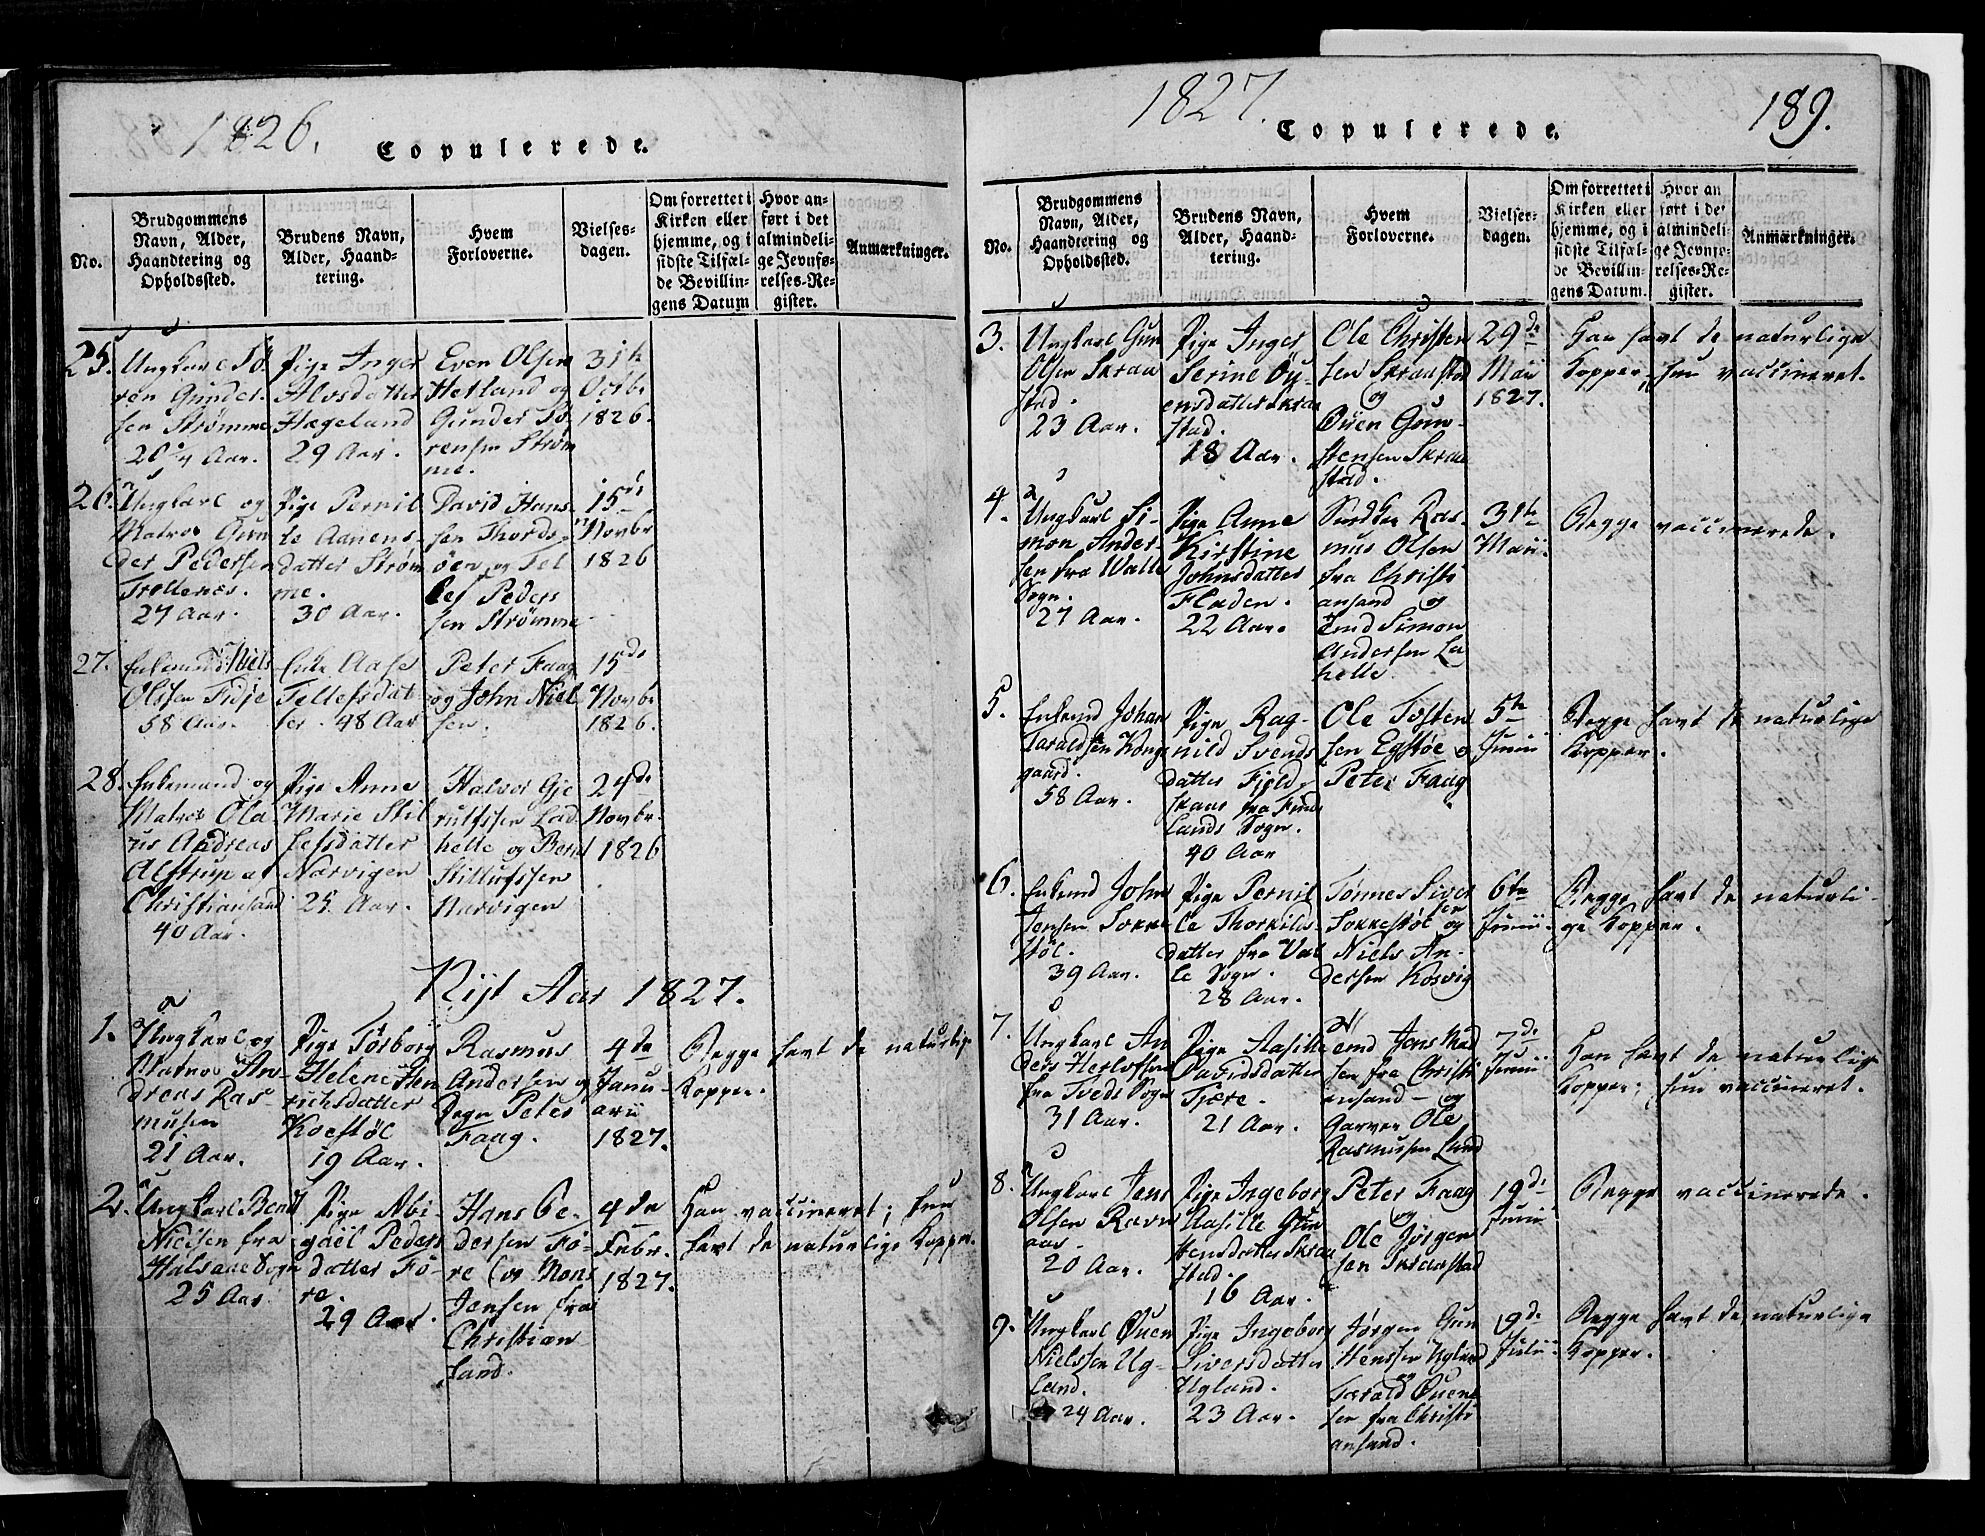 1826.
Copulerede.
No.
Brudgommens
Navn, Alder,
Haandtering og
Opholdssted.
Brudens Navn,
Alder, Haand-
tering.
Hvem
Forloverne.
Vielses-
dagen.
Om forrettet i
Kirken eller
hjemme, og i
sidste Tilfæl-
de Bevillin-
gens Datum
Hvor an-
ført i det
almindeli-
ge Jevnfø-
relses-Re-
gister.
Anmærkninger.
25.
Ungkarl Tø-
ren Gunder-
sen Strømme
20 Aar.
Pige Inger
Alvsdatter
Hægeland
29 Aar.
Even Olsen
Hetland og
Gunder Tø-
rensen Strøm
me.
31te
Octbr
1826.
26.
Ungkarl og
Matros Gun
der Pedersen
Trollenes.
27 Aar.
Pige Pernil
le Aanens-
datter Strøm
me.
30 Aar.
David Hans-
sen Thords-
øen og Tel
lef Peder
sen Strømme
15de
Novbr
1826
27.
Enkemand Niels
Olsen Fidje
58 Aar.
Enke Aase
Tellefsdat
ter. 48 Aar
Peter Faag
og John Niel
sen.
15de
Novbr
1826.
28.
Enkemand og
Matros Ola
us Andreas
Alstrup af
Christiansand
40 Aar.
Pige Anne
Marie Stil
lefsdatter
Narvigen
25. Aar.
Halvor Gje
rulfssen Lad
helle og Bernt
Stillufssen
Narvigen
24de
Novbr.
1826
Nyt Aar 1827.
1.
Ungkarl og
Matros An-
dreas Ras-
musen
21 Aar.
Pige Torborg
Helene Hen
richsdatter
Koestøl
19 Aar.
Rasmus
Andersen og
Peter
Faag.
4de
Janu-
arii
1827.
Begge havt de naturlige
Kopper.
2.
Ungkarl Bent
Nielsen fra
Halsaae Sogn
25 Aar
Pige Abi-
gael Peders
datter Fø-
re.
29 Aar.
Hans Pe-
dersen Fø-
re og Mons
Jensen fra
Christian-
sand.
4de
Febr.
1827.
Han vaccineret; hun
havt de naturlige Kopper.
1827.
Copulerede.
189.
No.
Brudgommens
Navn, Alder,
Haandtering og
Opholdssted.
Brudens Navn,
Alder, Haand-
tering.
Hvem
Forloverne.
Vielses-
dagen.
Om forrettet i
Kirken eller
hjemme, og i
sidste Tilfæl-
de Bevillin-
gens Datum.
Hvor an
ført i det
almindeli-
ge Jevnfø-
relses-Re-
gister.
Anmærkninger.
3.
Ungkarl Gun
Olsen Skraa
stad.
23 Aar.
Pige Inger
Serine Øy-
ensdatter Skraa
stad.
18 Aar.
Ole Christen
sen Skraastad
og
Øuen Gun-
stensen Skraa
stad.
29de
Maii
1827.
Han havt de naturlige
Kopper, hun vaccineret.
4.
Ungkarl Si-
mon Ander-
sen fra Walle
Sogn.
27 Aar.
Pige Anne
Kirstine
Johnsdatter
Fladen.
22 Aar.
Ras-
mus Olsen
fra Christi
ansand og
Simon
Andersen La
helle.
31te
Maii.
Begge vaccinerede.
5.
Enkmd Johan
Taraldsen Kongs
gaard.
58 Aar.
Pige Rag-
nild Svends
datter Fjeld-
skaar fra Find
lands Sogn.
40 Aar
Ole Tosten
sen Egstøe o
Peter Faag
5te
Junii
Begge havt de naturlige
Kopper.
6.
Enkmd John
Jensen Sokke
støl.
39 Aar.
Pige Pernil
le Thorkilds-
datter fra Val
le Sogn.
28 Aar.
Tønnes Siver
sen
Sokkestøl og
Niels An-
dersen Kosvig
6te
Junii.
Begge havt de naturli-
ge Kopper.
7.
Ungkarl An
ders Herlofsen
fra Tveds Sogn
31 Aar.
Pige Aasille
Davidsdatter
Tjære.
21 Aar.
Jens Mad
sen fra Christi
ansand og
Garver Ole
Rasmusen Lund
7de
Junii
Han havt de naturlige
Kopper; hun vaccineret.
8.
Ungkarl Jens
Olsen Ravn
aas
20 Aar.
Pige Ingeborg
Aasille Gun
stensdatter Skraa
stad.
16 Aar.
Peter Faag
og
Ole Jørgen
sen Skraastad
19de
Junii
Begge vaccinerede.
9.
Ungkarl Øuen
Nielssen Ug-
land.
24 Aar.
Pige Ingeborg
Siversdatter
Ugland.
23 Aar.
Jørgen Gun
stensen Ugland
og
Tarald Øuens
sen fra Christi
ansand.
19de
Julii.
Begge havt de naturlige
Kopper.